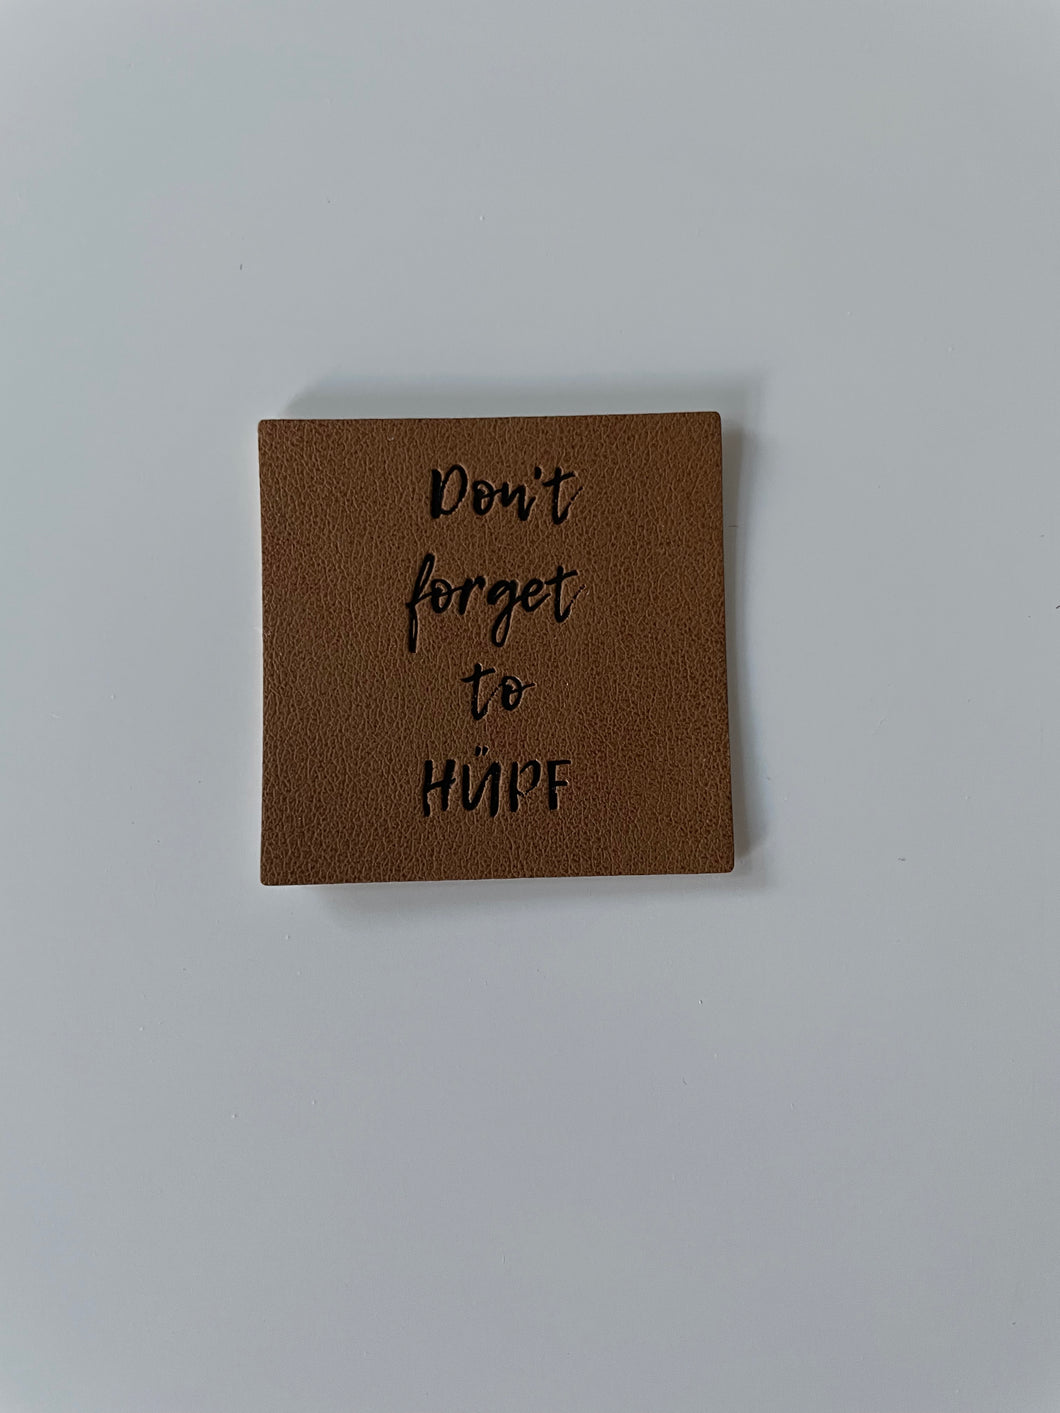 Don't
forget
to
HÜPF